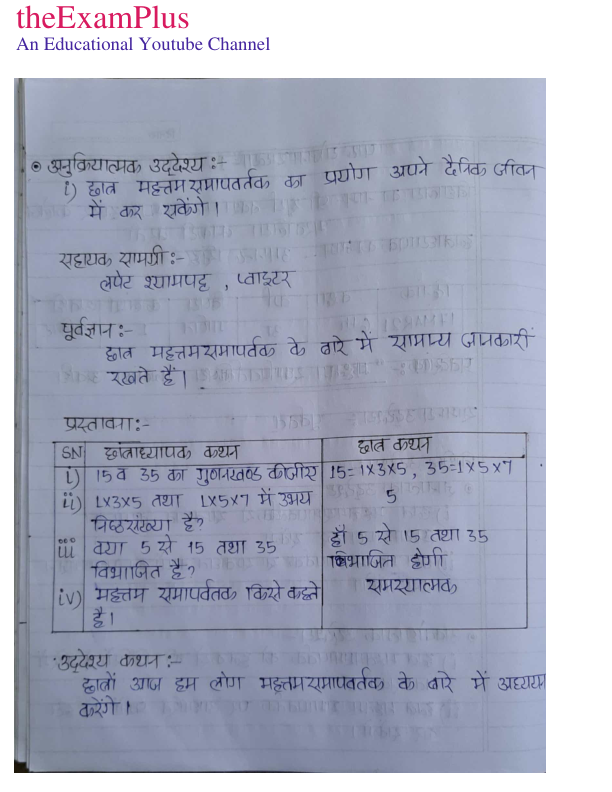 theExamPlus
An Educational Youtube Channel
अनुक्रियात्मक उद्देश्य :-
i) छात्र महत्तम समापवर्तक का प्रयोग अपने दैनिक जीवन
में कर सकेंगे।
सहायक सामग्री :-
लपेट श्यामपट्ट , प्वाइंटर
पूर्वज्ञान :-
छात्र महत्तम समापर्वतक के बारे में सामान्य जानकारी
रखते हैं।
प्रस्तावना :-
SN छात्राध्यापक कथन छात्र कथन
i) 15 व 35 का गुणनखण्ड कीजीए 15=1×3×5, 35=1×5×7
ii) 1×3×5 तथा 1×5×7 में उभय 5
निष्ठ संख्या है?
iii क्या 5 से 15 तथा 35 हाँ 5 से 15 तथा 35
विभाजित है? विभाजित होगी
iv) महत्तम समापर्वतक किसे कहते समस्यात्मक
है।
उद्देश्य कथन :-
छात्रों आज हम लोग महत्तम समापवर्तक के बारे में अध्ययन
करेंगे।